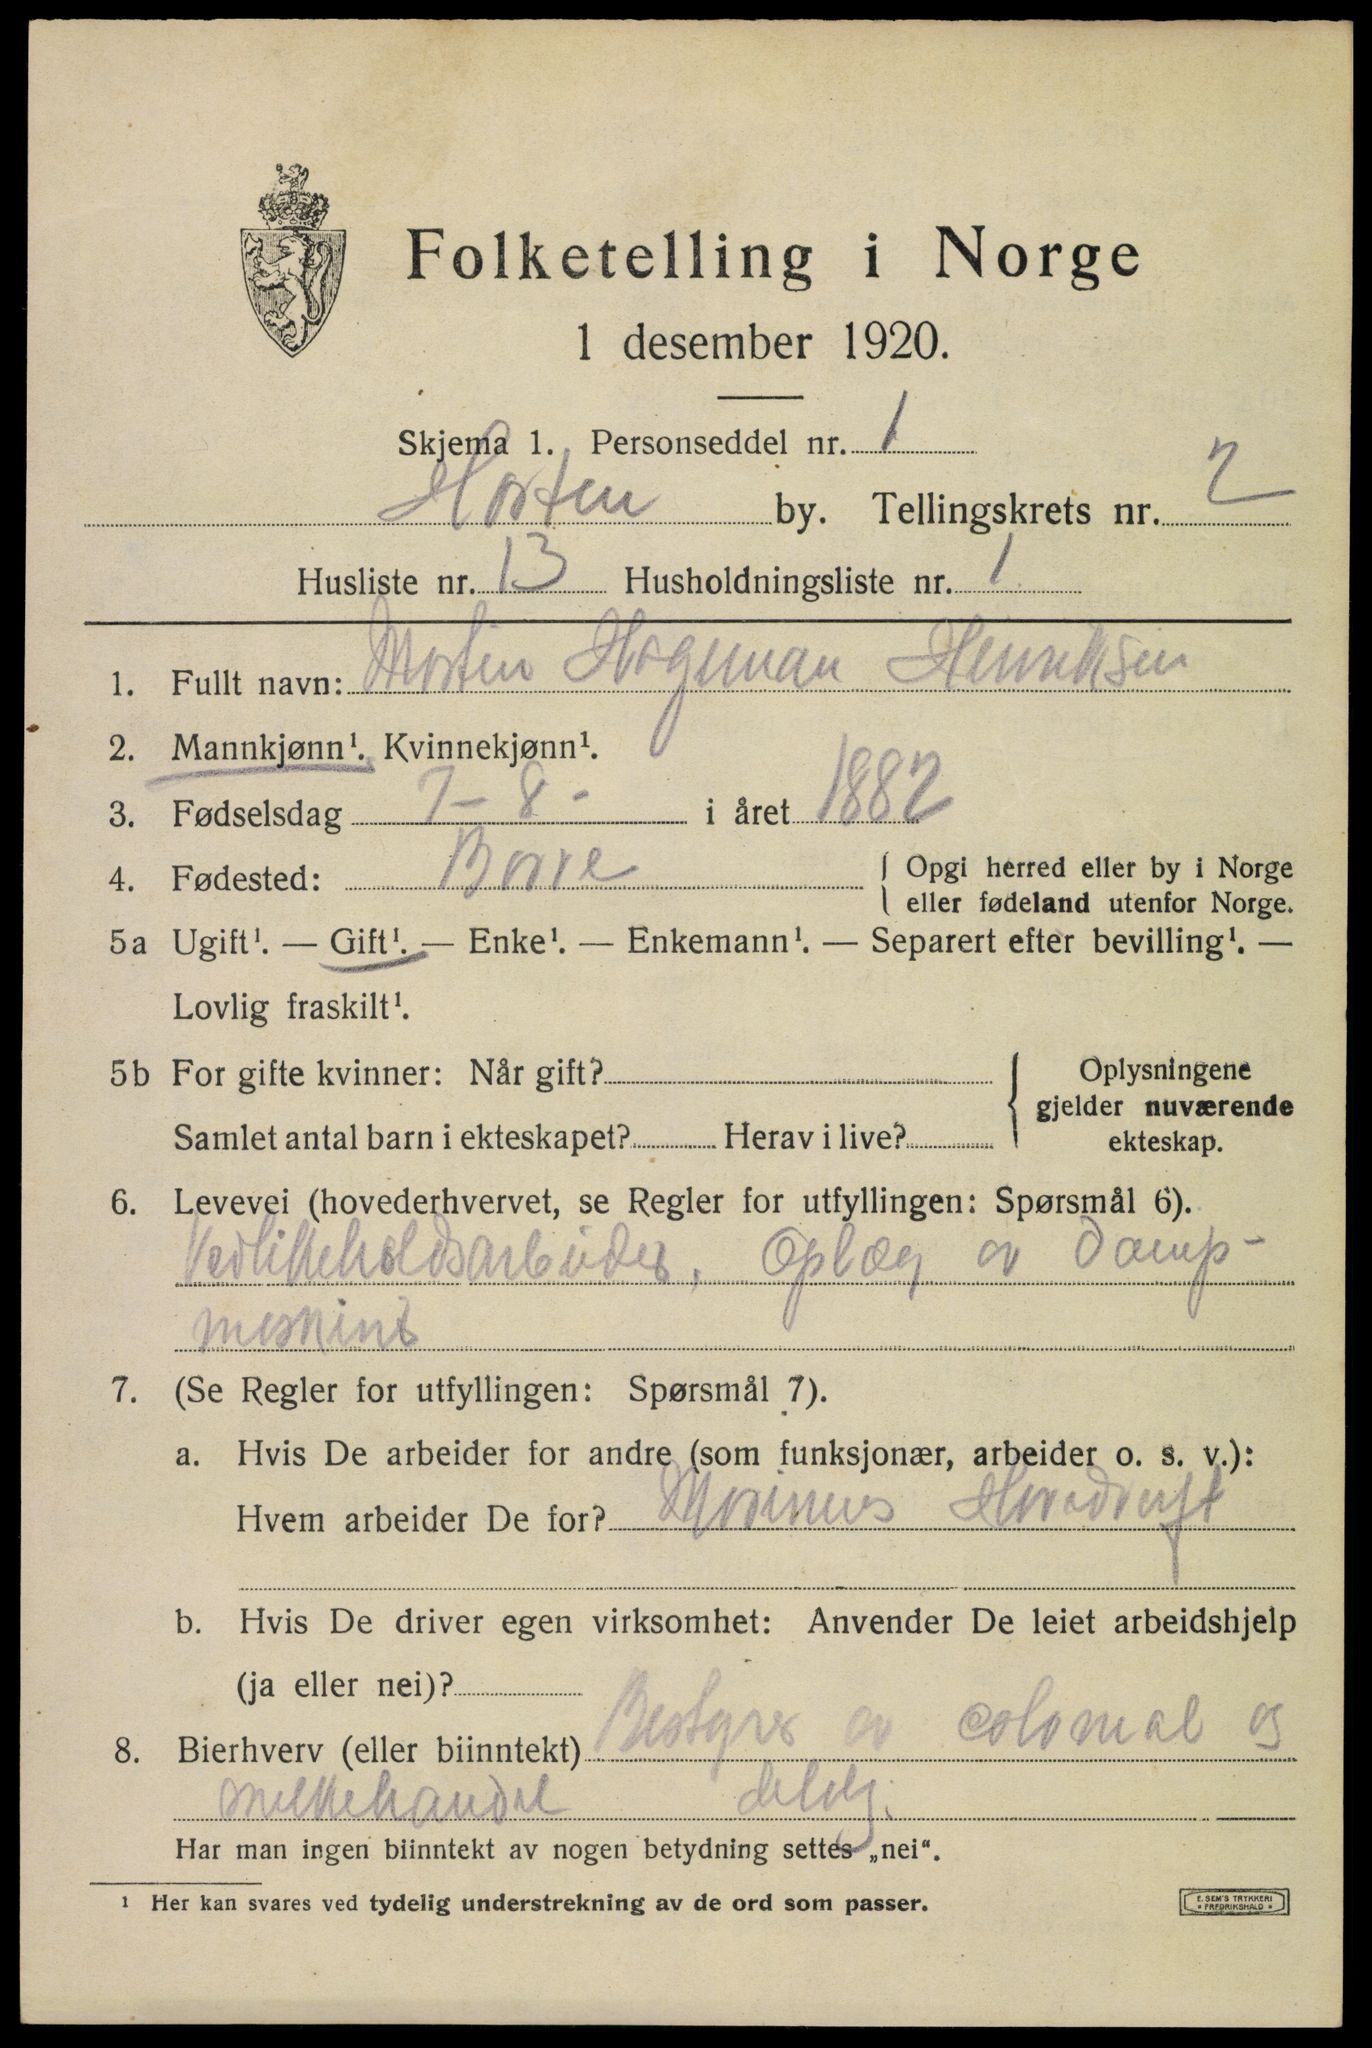 Folketelling i Norge
1 desember 1920.
Skjema 1. Personseddel nr. 1
Horten by. Tellingskrets nr. 2
Husliste nr. 13 Husholdningsliste nr. 1
1. Fullt navn: Morten Hageman Henriksen
2. Mannkjønn¹. Kvinnekjønn¹.
3. Fødselsdag 7-8- i året 1882
4. Fødested: Borre { Opgi herred eller by i Norge
eller fødeland utenfor Norge.
5a Ugift¹. — Gift¹. — Enke¹. — Enkemann¹. — Separert efter bevilling¹. —
Lovlig fraskilt¹.
5b For gifte kvinner: Når gift?
Samlet antal barn i ekteskapet? Herav i live?
Oplysningene
gjelder nuværende
ekteskap.
6. Levevei (hovederhvervet, se Regler for utfyllingen: Spørsmål 6).
Vedlikeholdsarbeider, Oplæg av damp-
7. (Se Regler for utfyllingen: Spørsmål 7).
a. Hvis De arbeider for andre (som funksjonær, arbeider o. s. v.):
Hvem arbeider De for? Marinens Hovedverft
b. Hvis De driver egen virksomhet: Anvender De leiet arbeidshjelp
(ja eller nei)?
8. Bierhverv (eller biinntekt) Bestyrer av colonial og
melkehandel
Har man ingen biinntekt av nogen betydning settes „nei“.
¹ Her kan svares ved tydelig understrekning av de ord som passer.
E. SEM'S TRYKKERI
* FREDRIKSHALD *